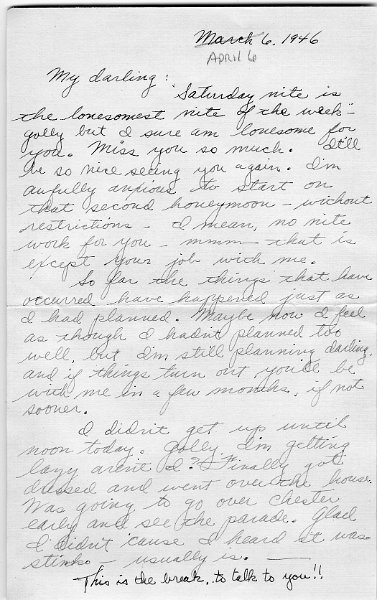 March 6, 1946
APRIL 6
My darling:
"Saturday nite is
the lonesomest nite of the week" -
golly but I sure am lonesome for
you. Miss you so much. It'll
be so nice seeing you again. I'm
awfully anxious to start on
that second honeymoon - without
restrictions - I mean, no nite
work for you - mmm - that is
except your job with me.
So far the things that have
occurred - have happened just as
I had planned. Maybe now I feel
as though I hadn't planned too
well, but I'm still planning darling,
and if things turn out you'll be
with me in a few months, if not
sooner.
I didn't get up until
noon today. Golly I'm getting
lazy aren't I? Finally got
dressed and went over the house.
Was going to go over Chester
early and see the parade. Glad
I didn't 'cause I heard it was
stinko - usually is. -
This is the break, to talk to you!!